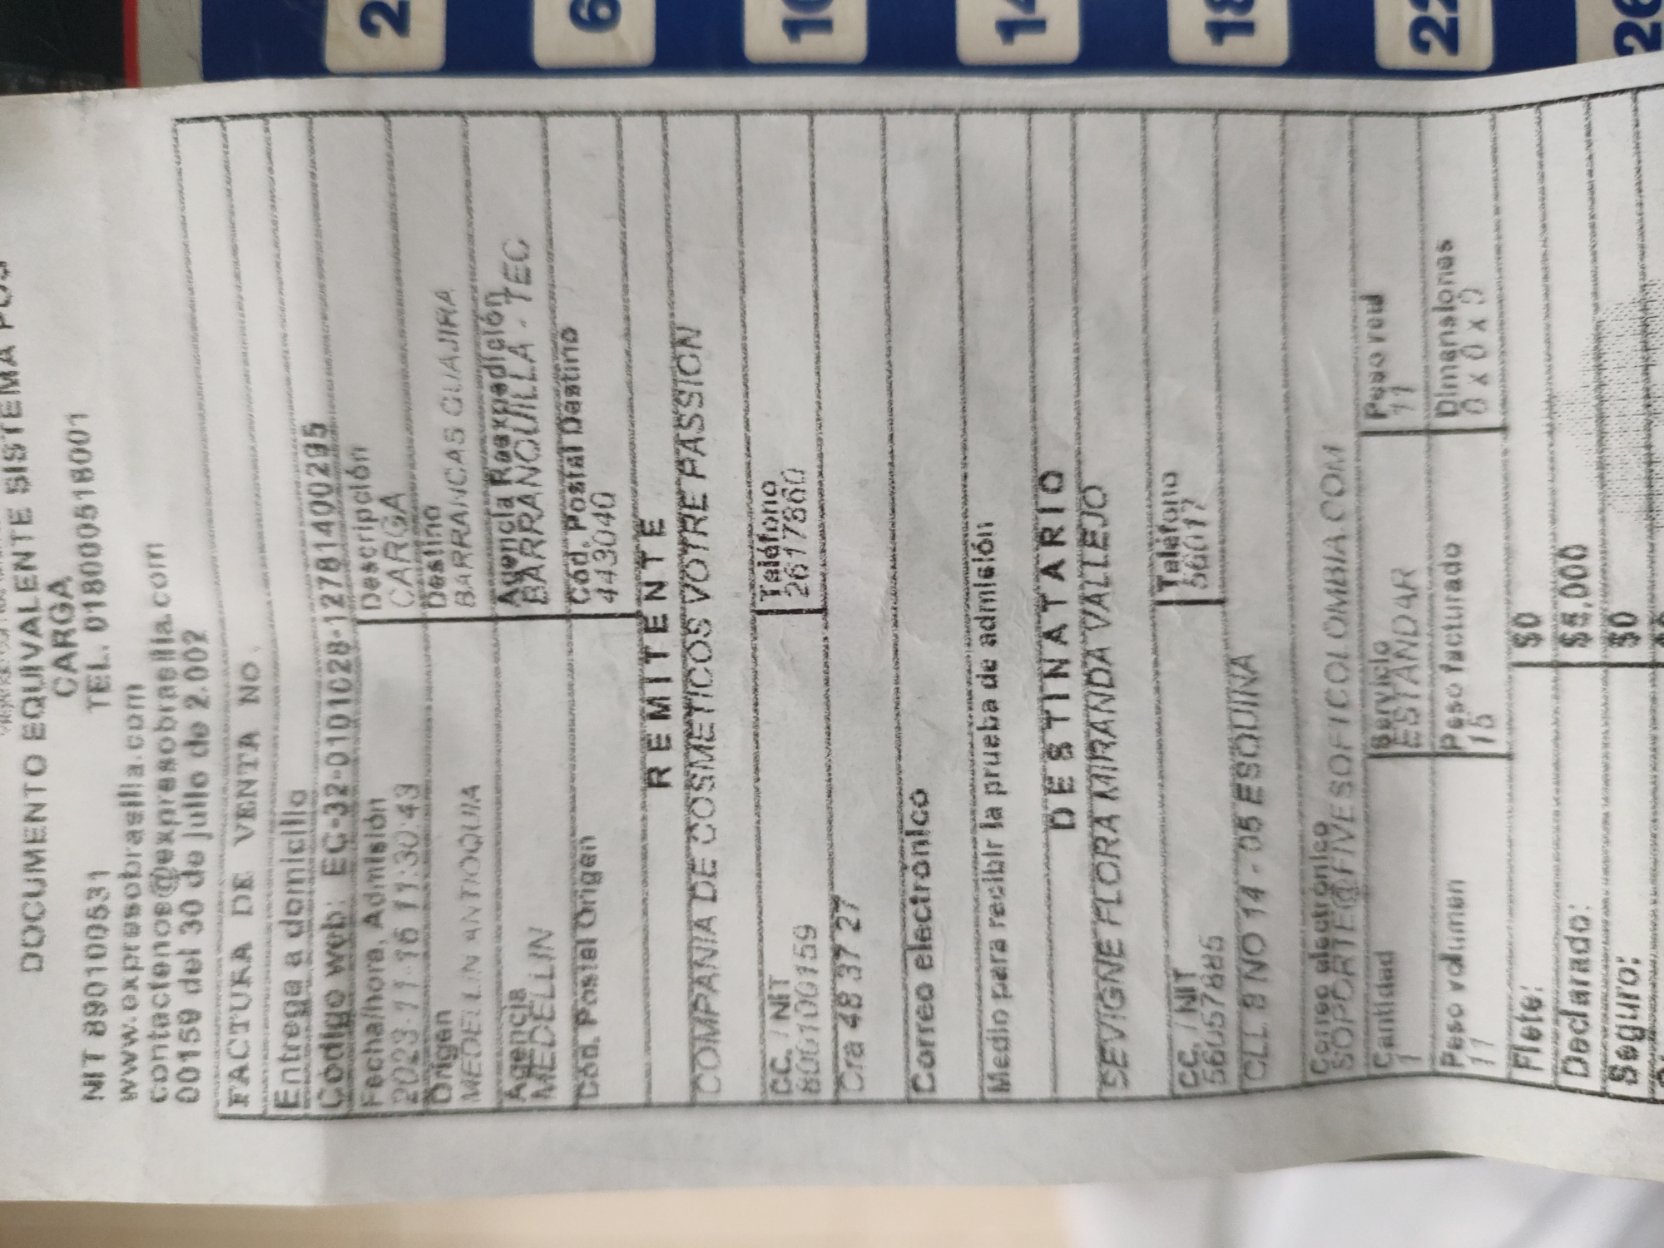 DOCUMENTO EQUIVALENTE SISTEMA POS
CARGA
NIT 890100531 TEL. 018000518001
www.expresobrasilia.com
contactenos@expresobrasilia.com
00159 del 30 de julio de 2.002
FACTURA DE VENTA NO.
Entrega a domicilio
Código web: EC-32-0101028-12781400295
Fecha/hora. Admisión Descripción
2023-11-16 11:30:43 CARGA
Origen Destino
MEDELLIN ANTIOQUIA BARRANCAS GUAJIRA
Agencia Agencia Reexpedición
MEDELLIN BARRANQUILLA - TEC
Cód. Postal Origen Cód. Postal Destino
443040
REMITENTE
COMPANIA DE COSMETICOS VOTRE PASSION
CC. / NIT Teléfono
800100159 2617860
Cra 48 37 27
Correo electronico
Medio para recibir la prueba de admisión
DESTINATARIO
SEVIGNE FLORA MIRANDA VALLEJO
CC. / NIT Teléfono
56057885 56017
CLL 8 NO 14 - 05 ESQUINA
Correo electrónico
SOPORTE@FIVESOFICOLOMBIA.COM
Cantidad Servicio Peso real
1 ESTANDAR 11
Peso volumen Peso facturado Dimensiones
11 15 0 x 0 x 0
Flete: $0
Declarado: $5.000
Seguro: $0
2
6
10
14
18
22
26